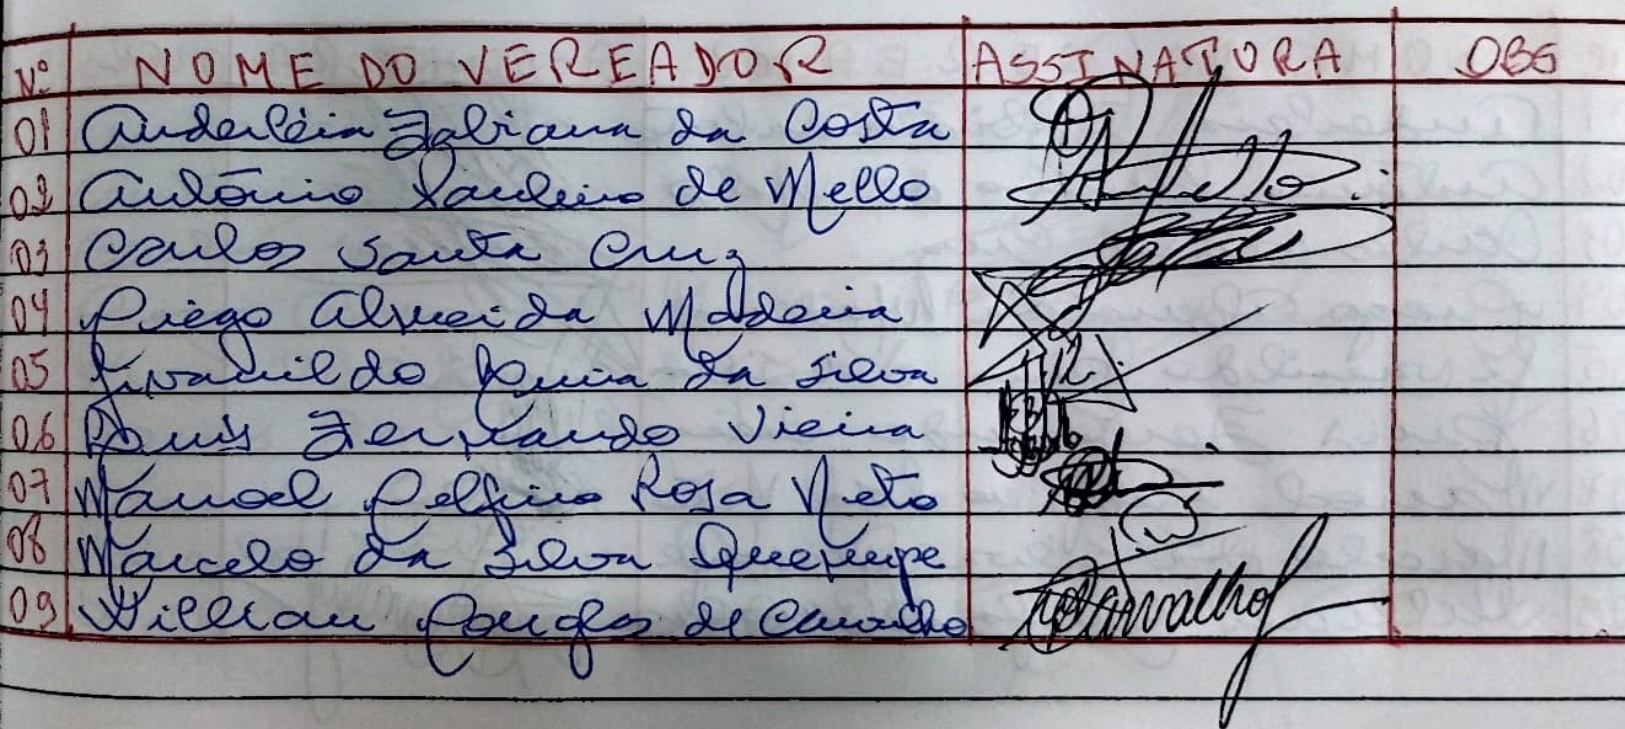 Nº NOME DO VEREADOR ASSINATURA OBS
01 Anderléia Fabiana da Costa
02 Antônio Paulino de Mello
03 Carlos Santa Cruz
04 Diego Almeida Madeira
05 Givanildo da Silva
06 Luis Fernando Vieira
07 Manoel Delfino Rosa Neto
08 Marcelo da Silva
09 Willian Douglas de Carvalho Carvalho